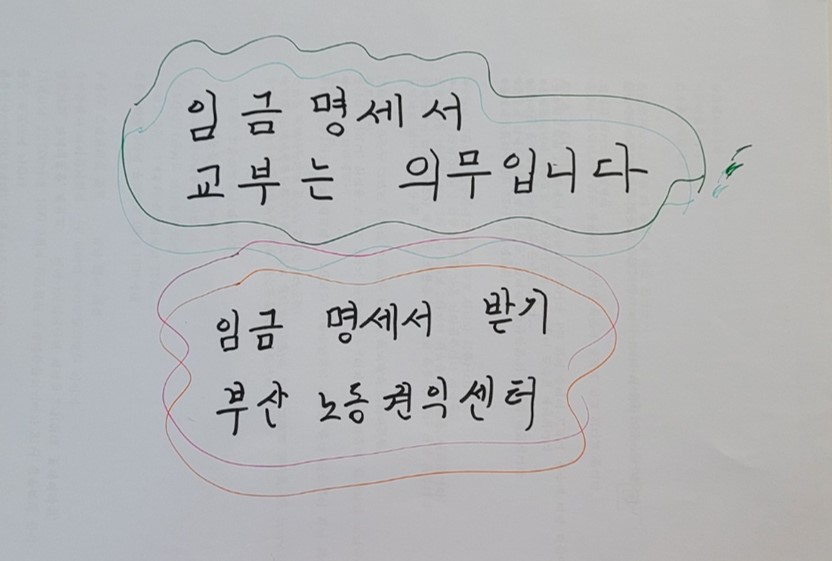 임금명세서
교부는 의무입니다
임금 명세서 받기
부산 노동권익센터